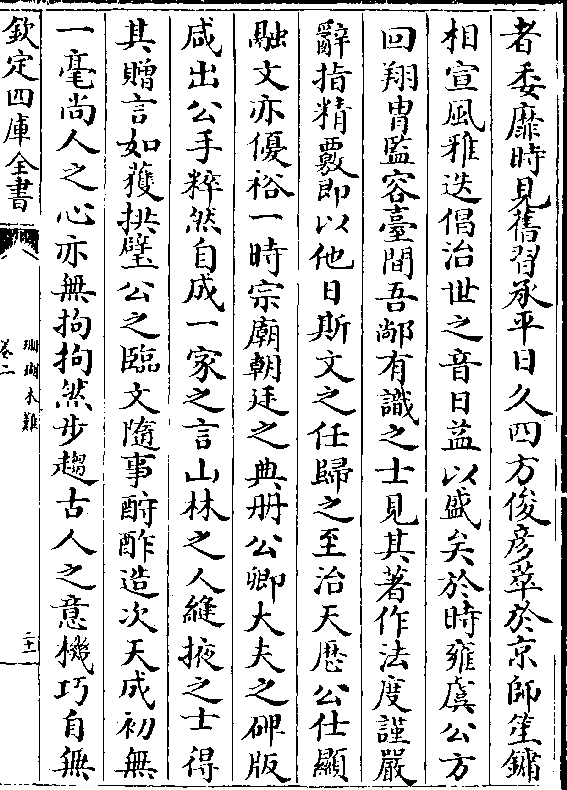 者委靡時見舊習承平日久四方俊彦萃於京師笙鏞
相宣風雅迭倡治世之音日益以盛矣於時雍虞公方
回翔胄監容臺間吾鄉有識之士見其著作法度謹嚴
辭指精覈即以他日斯文之任歸之至治天厯公仕顯
融文亦優裕一時宗廟朝廷之典册公卿大夫之碑版
咸出公手粹然自成一家之言山林之人縫掖之士得
其贈言如獲拱璧公之臨文隨事酧酢造次天成初無
一毫尚人之心亦無拘拘然步趨古人之意機巧自無
欽定四庫全書
珊瑚木難
卷二
二十一